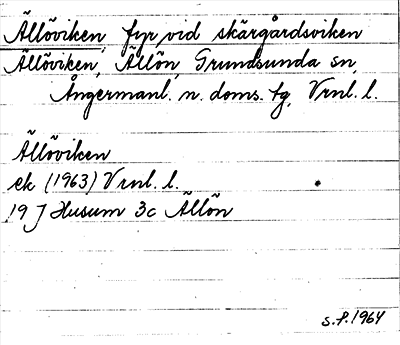 Ällöviken, fyr, vid skärgårdsviken
Ällöviken, Ällön, Grundsunda sn,
Ångermanl. n. doms. tg, Vrnl. l.
Ällöviken
ek (1963) Vrnl. l.
19 J Husum 3c Ällön
S.F. 1964